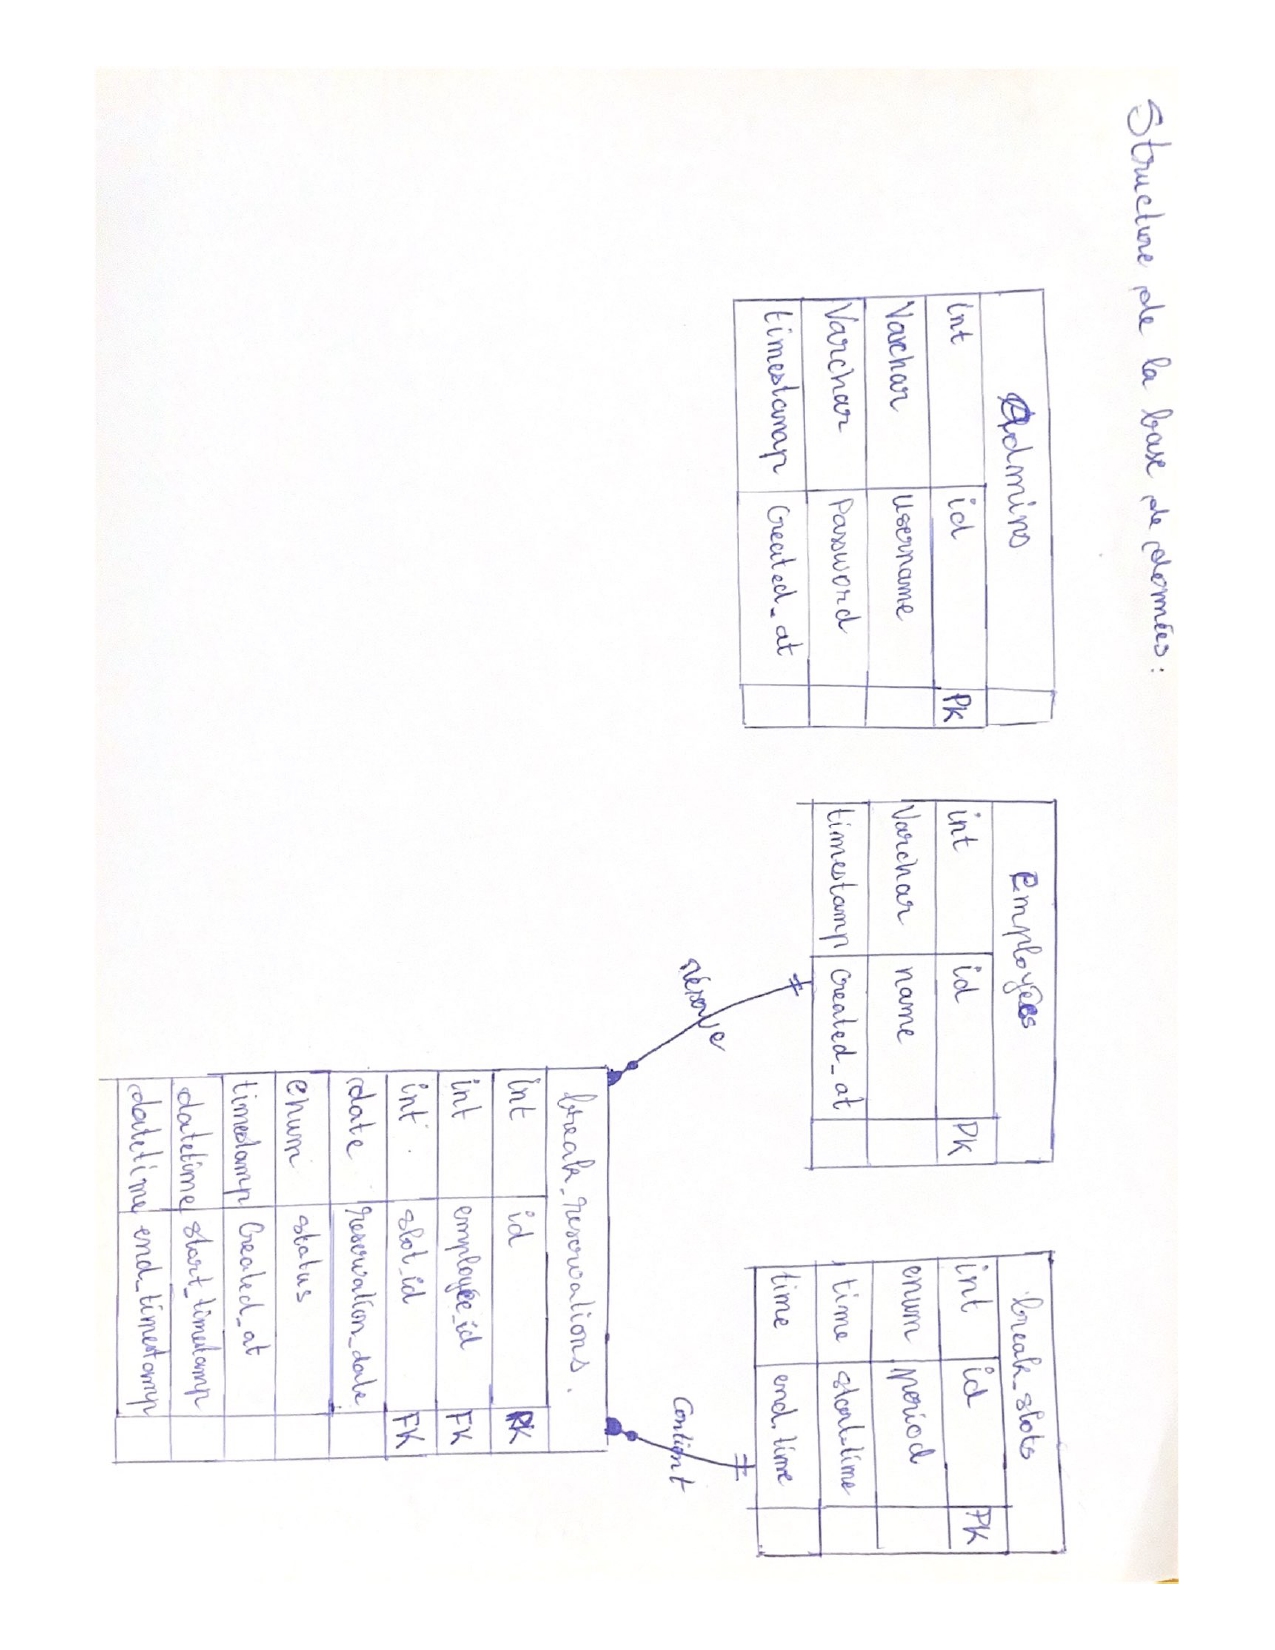 Structure de la base de données :
Admins
int id PK
Varchar username
Varchar Password
timestamap Created_at
Employées
int id PK
Varchar name
timestamp created_at
break_slots
int id PK
enum period
time start_time
time end_time
réserve
Contient
break_reservations.
int id PK
int employée_id FK
int slot_id FK
date reservation_date
enum status
timestamp Created_at
datetime start_timestamp
datetime end_timestamp